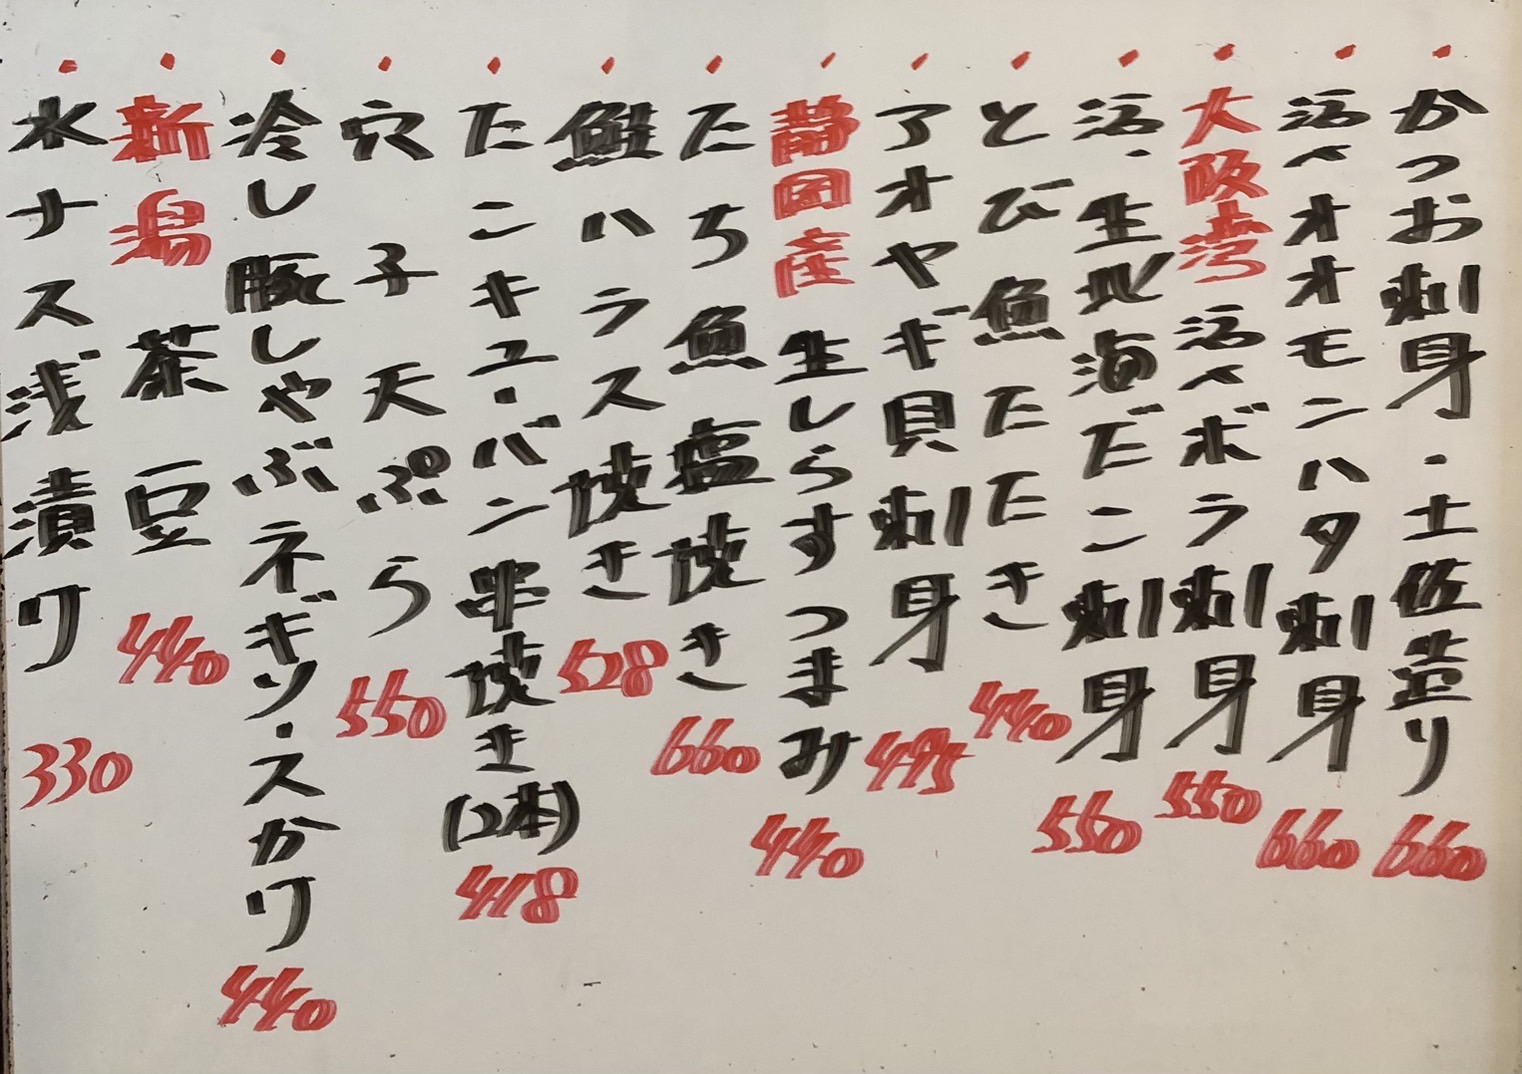 ・かつお刺身・土佐造り 660
・活〆オオモンハタ刺身 660
・大阪湾活〆ボラ刺身 550
・活、生北海だこ刺身 550
・とび魚たたき 440
・アオヤギ貝刺身 495
・静岡産生しらすつまみ 440
・たち魚塩焼き 660
・鮭ハラス焼き 528
・たこキュ・バン串焼き(2本) 418
・穴子天ぷら 550
・冷し豚しゃぶネギソ・スかけ 440
・新潟茶豆 440
・水ナス浅漬け 330